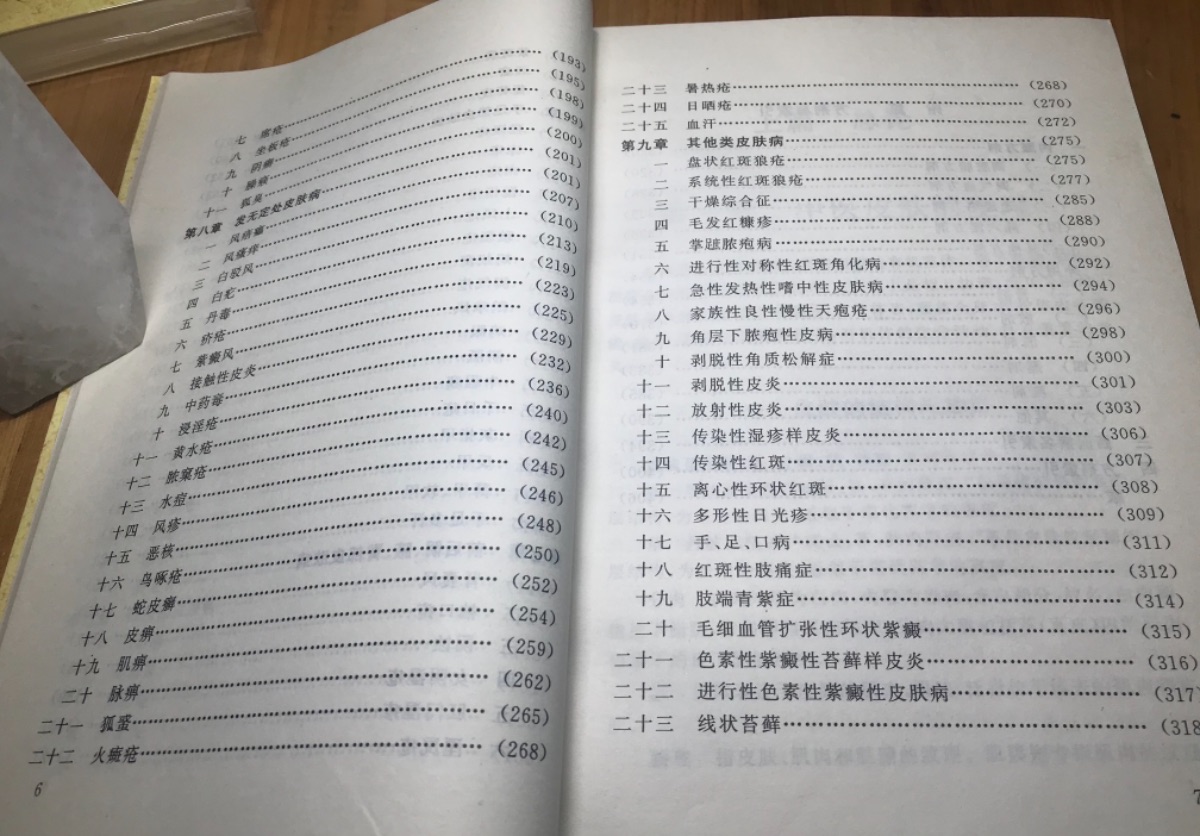 七 ……(193)
八 坐板疮……(195)
九 阴癣……(198)
十 ……(199)
十一 狐臭……(200)
第八章 发无定处皮肤病……(201)
一 ……(201)
二 风瘙痒……(207)
三 白驳风……(210)
四 白疕……(213)
五 丹毒……(219)
六 疥疮……(223)
七 紫癜风……(225)
八 接触性皮炎……(229)
九 中药毒……(232)
十 浸淫疮……(236)
十一 黄水疮……(240)
十二 脓窠疮……(242)
十三 水痘……(245)
十四 风疹……(246)
十五 恶核……(248)
十六 鸟啄疮……(250)
十七 蛇皮癣……(252)
十八 皮痹……(254)
十九 肌痹……(259)
二十 脉痹……(262)
二十一 ……(265)
二十二 ……(268)
6
二十三 暑热疮……(268)
二十四 日晒疮……(270)
二十五 血汗……(272)
第九章 其他类皮肤病……(275)
一 盘状红斑狼疮……(275)
二 系统性红斑狼疮……(277)
三 干燥综合征……(285)
四 毛发红糠疹……(288)
五 掌蹠脓疱病……(290)
六 进行性对称性红斑角化病……(292)
七 急性发热性嗜中性皮肤病……(294)
八 家族性良性慢性天疱疮……(296)
九 角层下脓疱性皮病……(298)
十 剥脱性角质松解症……(300)
十一 剥脱性皮炎……(301)
十二 放射性皮炎……(303)
十三 传染性湿疹样皮炎……(306)
十四 传染性红斑……(307)
十五 离心性环状红斑……(308)
十六 多形性日光疹……(309)
十七 手、足、口病……(311)
十八 红斑性肢痛症……(312)
十九 肢端青紫症……(314)
二十 毛细血管扩张性环状紫癜……(315)
二十一 色素性紫癜性苔藓样皮炎……(316)
二十二 进行性色素性紫癜性皮肤病……(317)
二十三 线状苔藓……(318
7